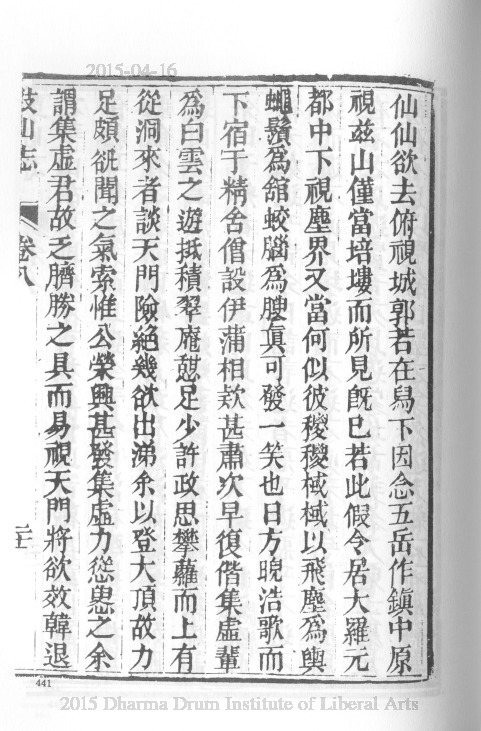 2015-04-16
仙仙欲去俯視城郭若在舄下因念五岳作鎮中原
視茲山僅當培塿而所見旣已若此假令居大羅元
都中下視塵界又當何似彼稷稷棫棫以飛塵爲輿
蠅鬚爲舘蛟腦爲膄眞可發一笑也日方晲浩歌而
下宿于精舍僧設伊蒲相欵甚肅次早復偕集虛輩
爲白雲之遊抵積翠庵憇足少許政思攀蘿而上有
從洞來者談天門險絕幾欲出涕余以登大頂故力
足頗㑊聞之氣索惟公榮興甚發集虛力慫恿之余
謂集虛君故乏臍勝之具而易視天門將欲效韓退
鼓山志
卷八
二十
441
2015 Dharma Drum Institute of Liberal Arts